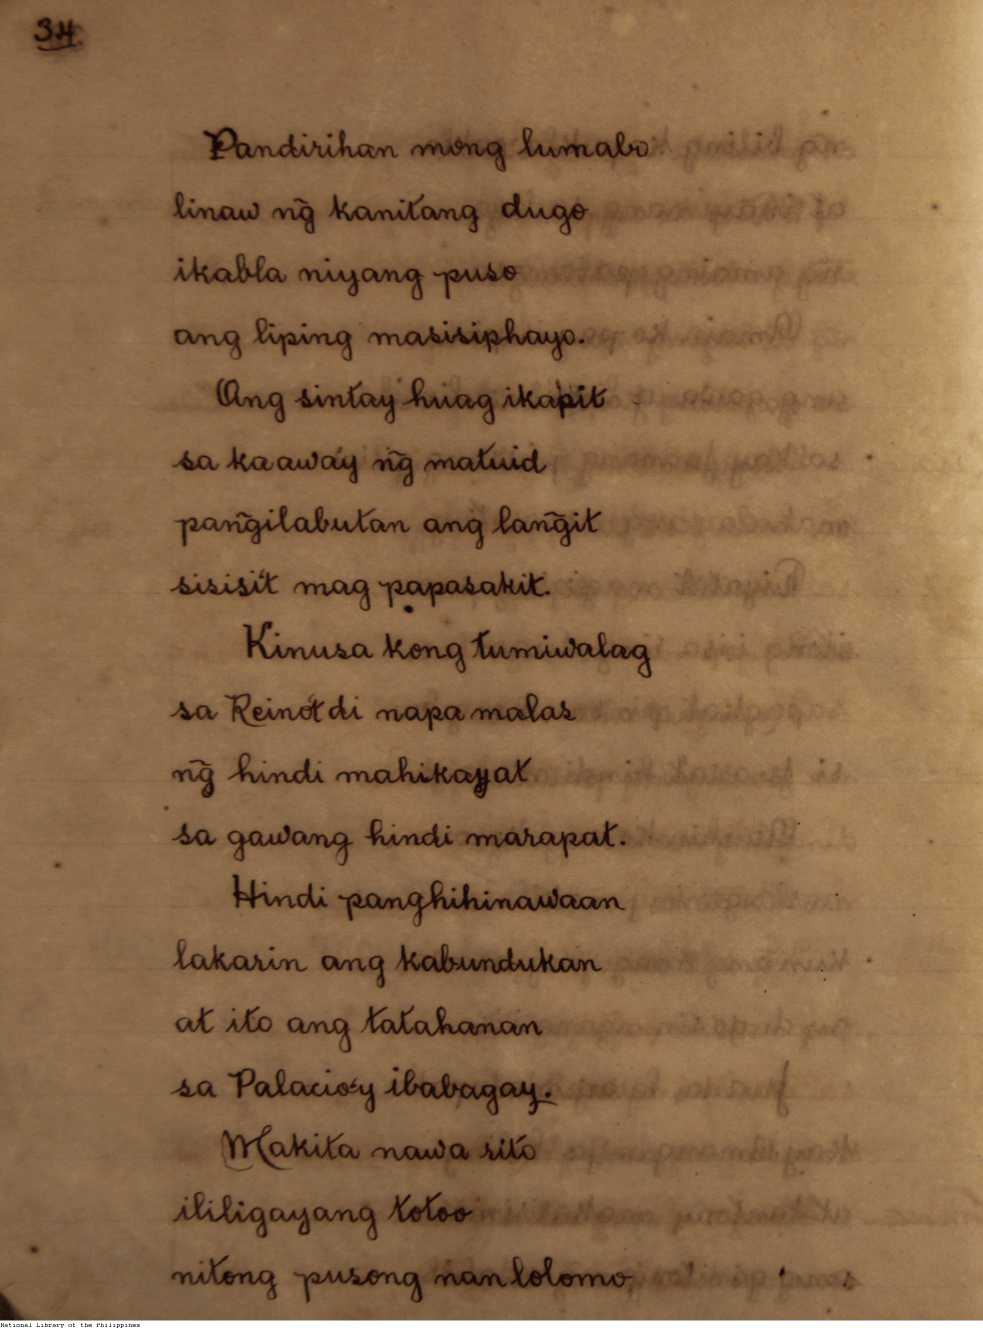 34.
Pandirihan mong lumabo
linaw ng̃ kanitang dugo
ikabla niyang puso
ang liping masisiphayo.
Ang sintay huag ikapit
sa kaaway ng̃ matuid
pang̃ilabutan ang lang̃it
sisisi't mag papasakit.
Kinusa kong tumiwalag
sa Reino't di napa malas
ng̃ hindi mahikayat
sa gawang hindi marapat.
Hindi panghihinawaan
lakarin ang kabundukan
at ito ang tatahanan
sa Palacio'y ibabagay.
Makita nawa sito
ililigayang totoo
nitong pusong nan lolomo,
National Library of the Philippines